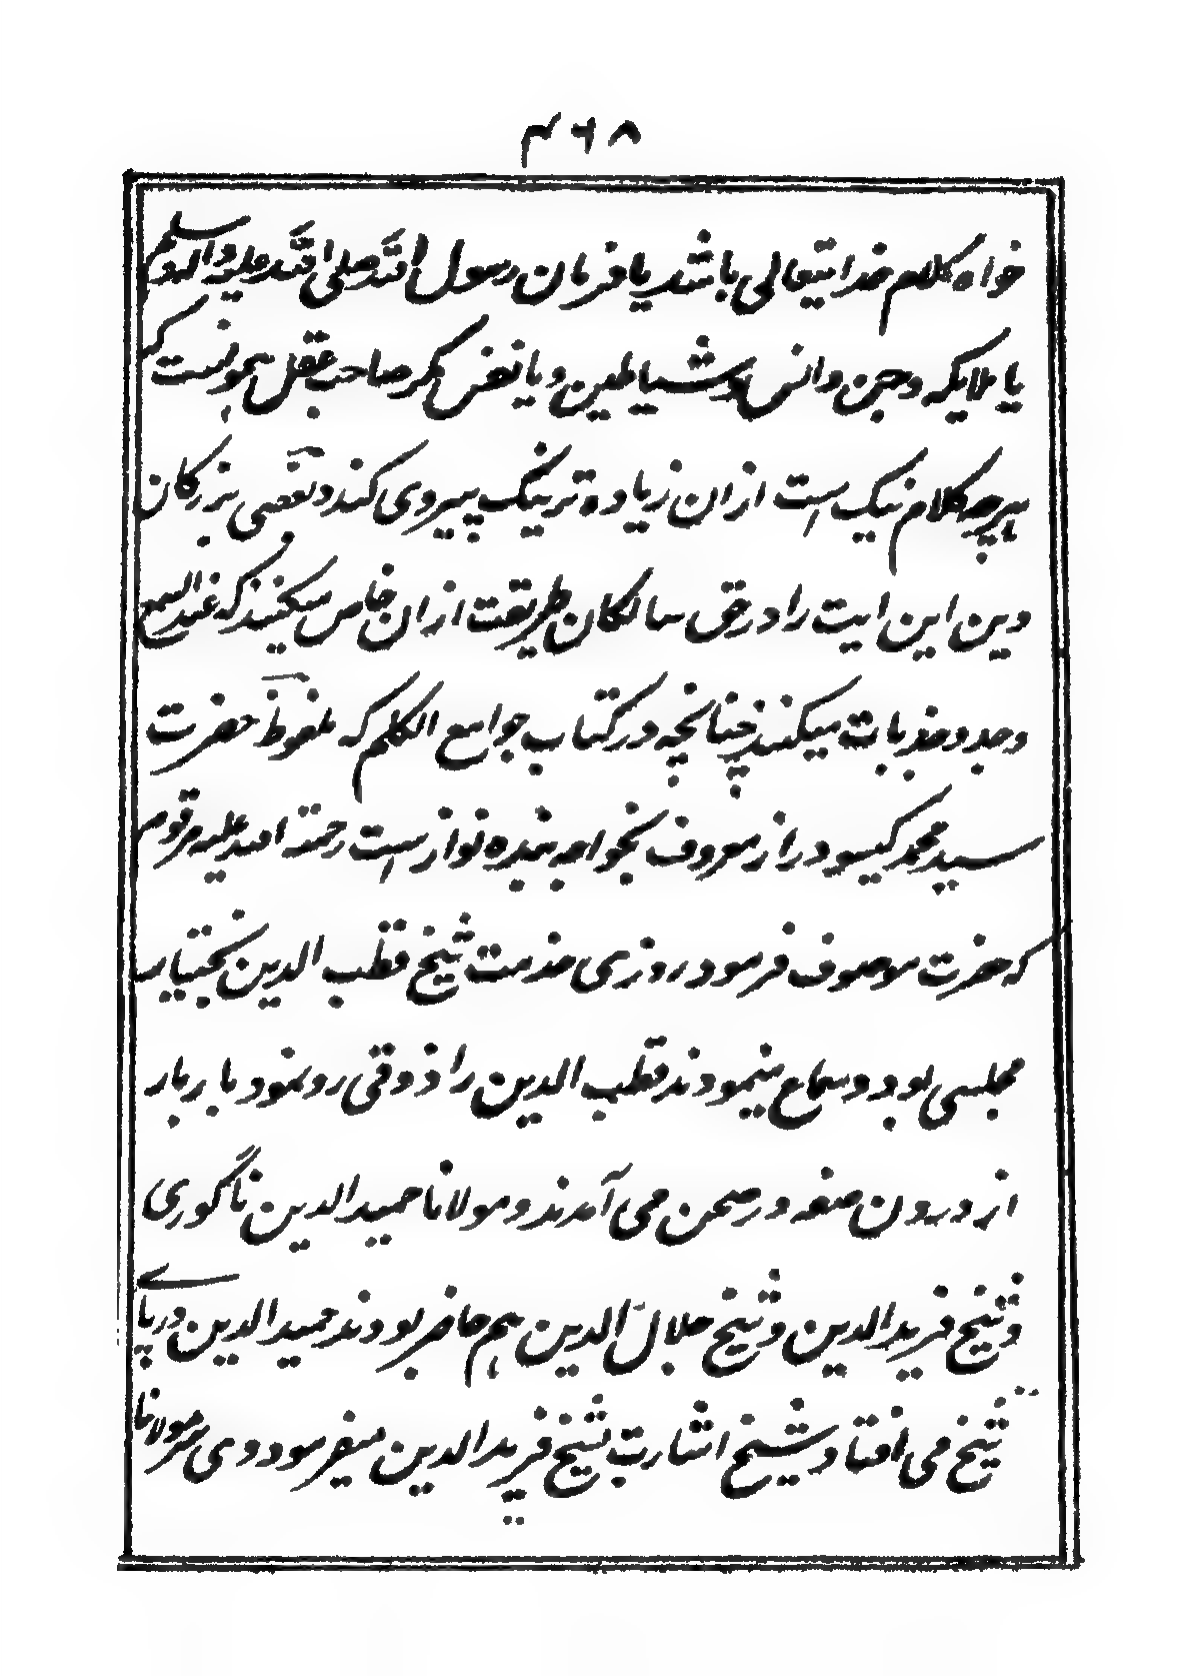 ۴۶۸
خواه کلام خدایتعالی باشد یا فرمان رسول الله صلی الله علیه وآله وسلم
یا ملایکه وجن وانس وشیاطین ویا نفس مگر صاحب عقل همونست که
هرچه کلام نیک است ازان زیاده تر نیک پیروی کند وبعضی بزرگان
دین این ایت را در حق سالکان طریقت ازان خاص میکنند که عند السمع
وجد وجذبات میکنند چنانچه در کتاب جوامع الکلم که ملفوظ حضرت
سید محمد گیسو دراز معروف بخواجه بنده نواز است رحمة الله علیه مرقوم
که حضرت موصوف فرمود روزی خدمت شیخ قطب الدین بختیار
مجلسی بود وسماع میشنودند قطب الدین را ذوقی رو نمود بار بار
از درون صفه در صحن می آمدند ومولانا حمید الدین ناگوری
وشیخ فرید الدین وشیخ جلال الدین هم حاضر بودند حمید الدین در پای
شیخ می افتاد وشیخ اشارت شیخ فرید الدین میفرمود ووی مر مولانا